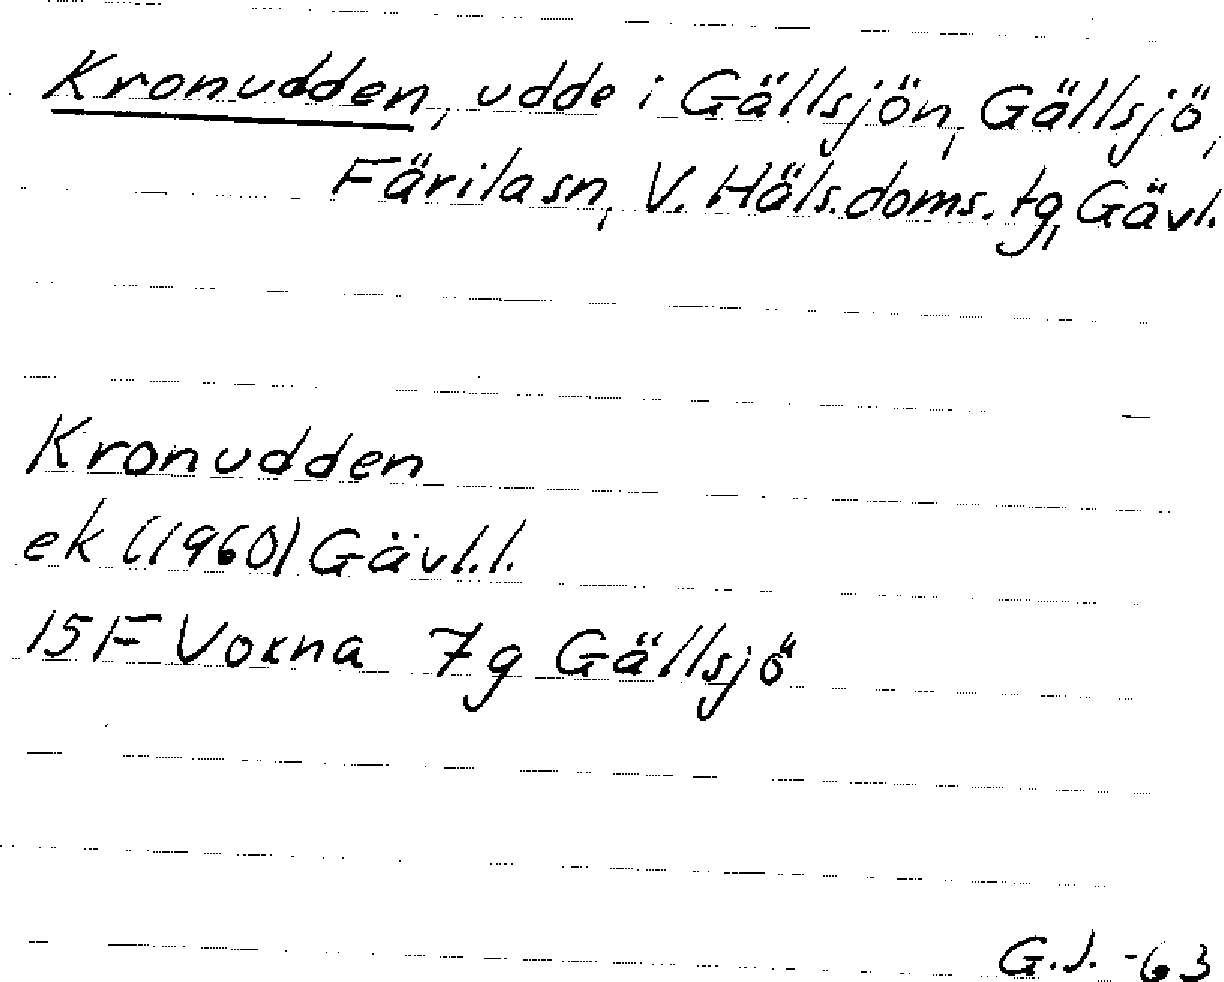 Kronudden, udde i Gällsjön, Gällsjö,
Färila sn, V. Häls. doms. tg, Gävl.
Kronudden
ek (1960) Gävl. l.
15F Voxna 7g Gällsjö
G.J. -63